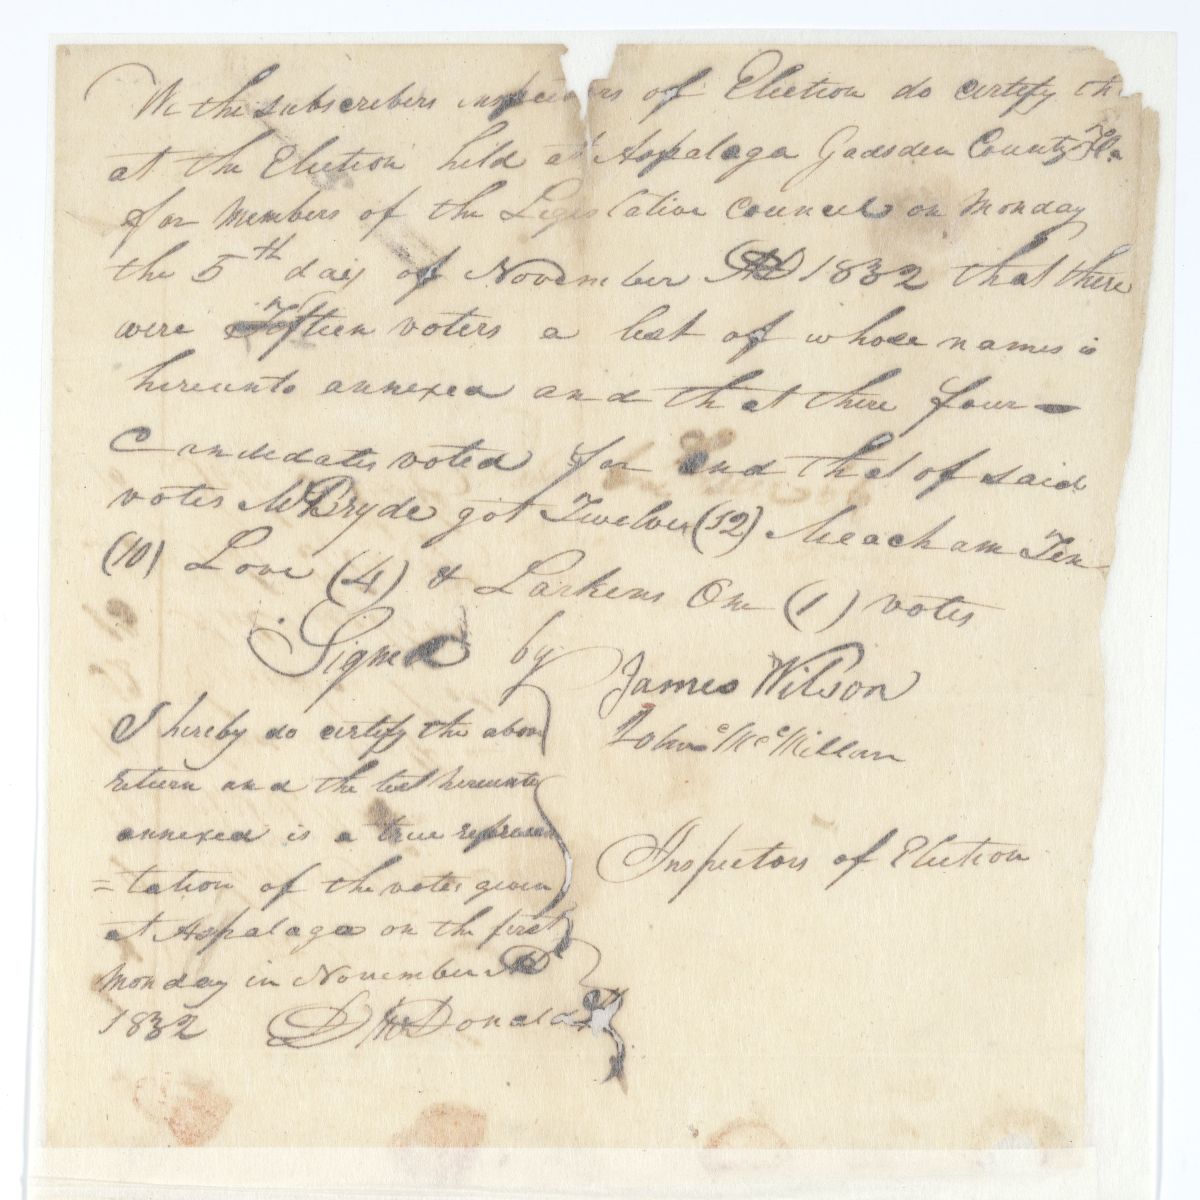 We the subscribers inspectors of Election do certify th
at the Election held at Aspalaga Gadsden County Fla
for Members of the Legislative Council on Monday
the 5th day of November AD 1832 that there
were Fifteen voters a list of whose names is
hereunto annexed and that there four
Candidates voted for and that of said
votes McBryde got Twelve (12) Meacham Ten
(10) Love (4) & Larkens One (1) votes
Signed by
James Wilson
John McMillan
Inspectors of Election
I hereby do certify the above
return and the list hereunto
annexed is a true represen
=tation of the votes given
at Aspalaga on the first
Monday in November AD
1832 D McDonald